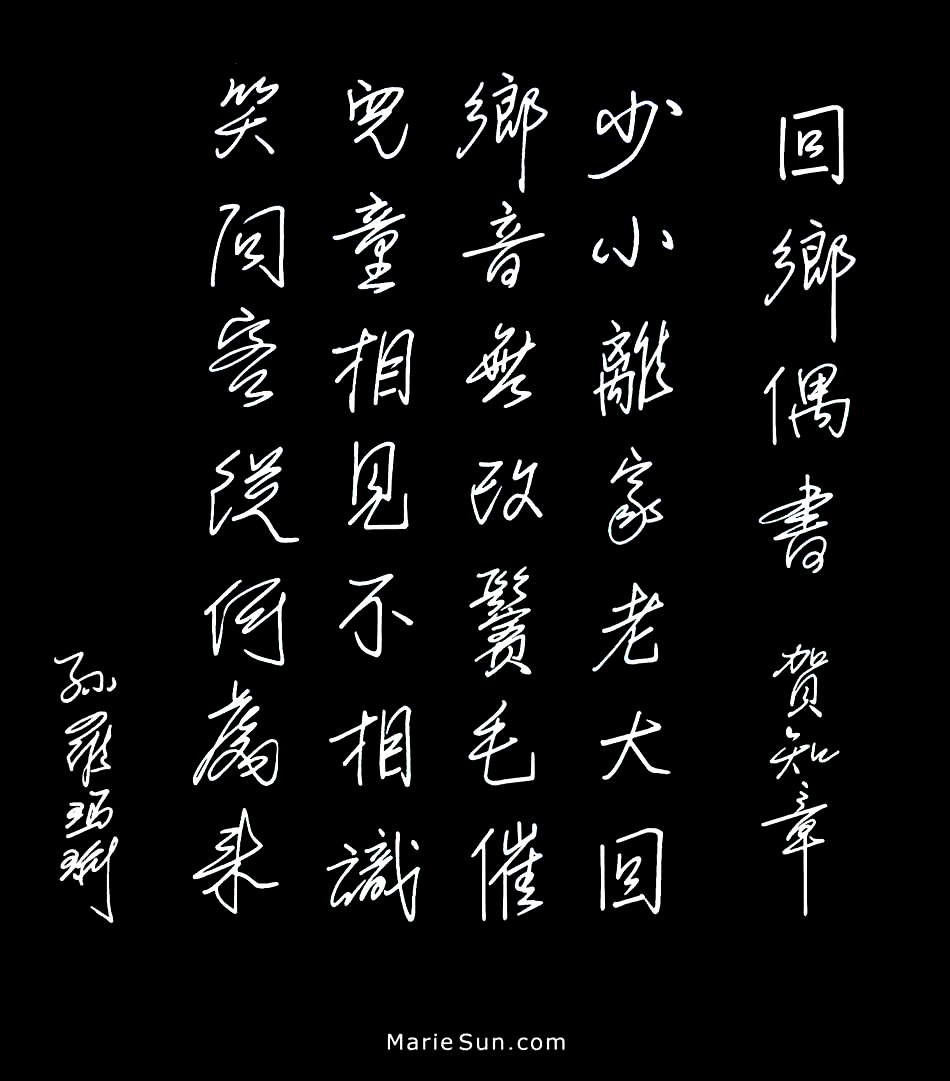 回鄉偶書 賀知章
少小離家老大回
鄉音無改鬢毛催
兒童相見不相識
笑問客從何處來
孫羅瑪琍
MarieSun.com